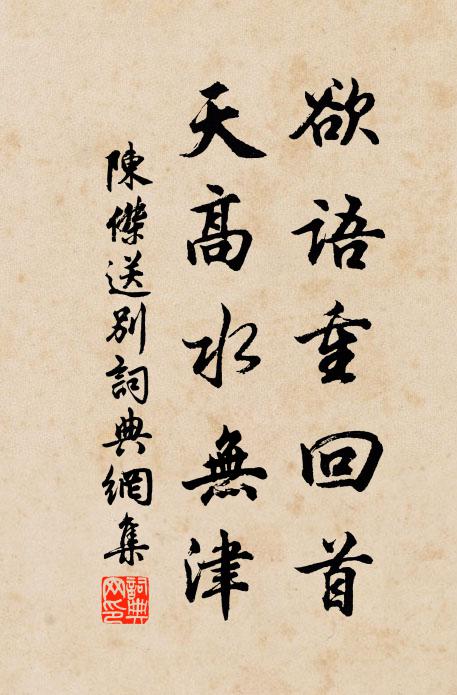 欲語重回首
天高水無津
陳傑送別詞典網集
詞典网印